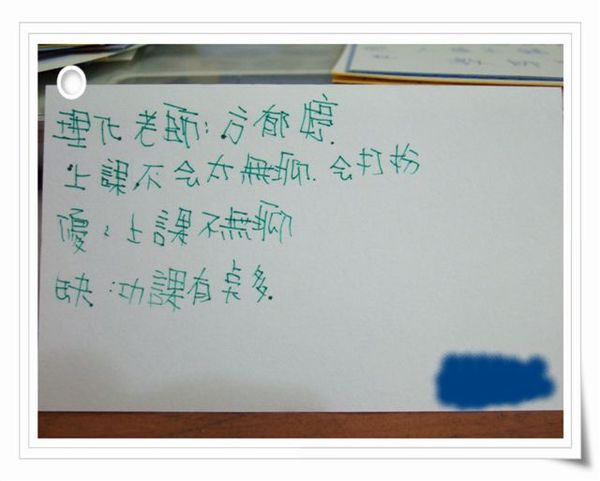 理化老師:方郁婷.
上課不会太無聊.会打扮
優:上課不無聊
缺:功課有點多.